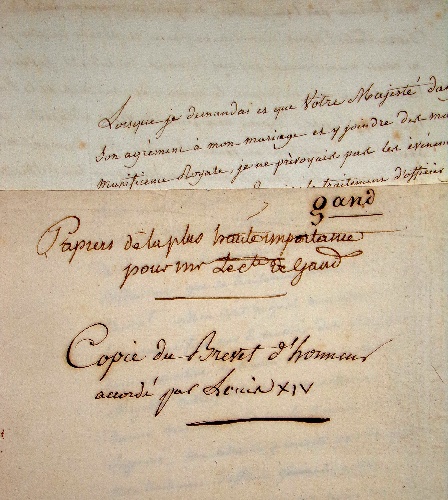 Lorsque je demandai ce que Votre Majesté da
son agrément à mon mariage et y joindre des ma
munificence Royale, je ne prévoyais pas les événem
le traitement d'officier
gand
Papiers de la plus haute importance
pour mr le cte de Gand
Copie du Brevet d'honneur
accordé par Louis XIV